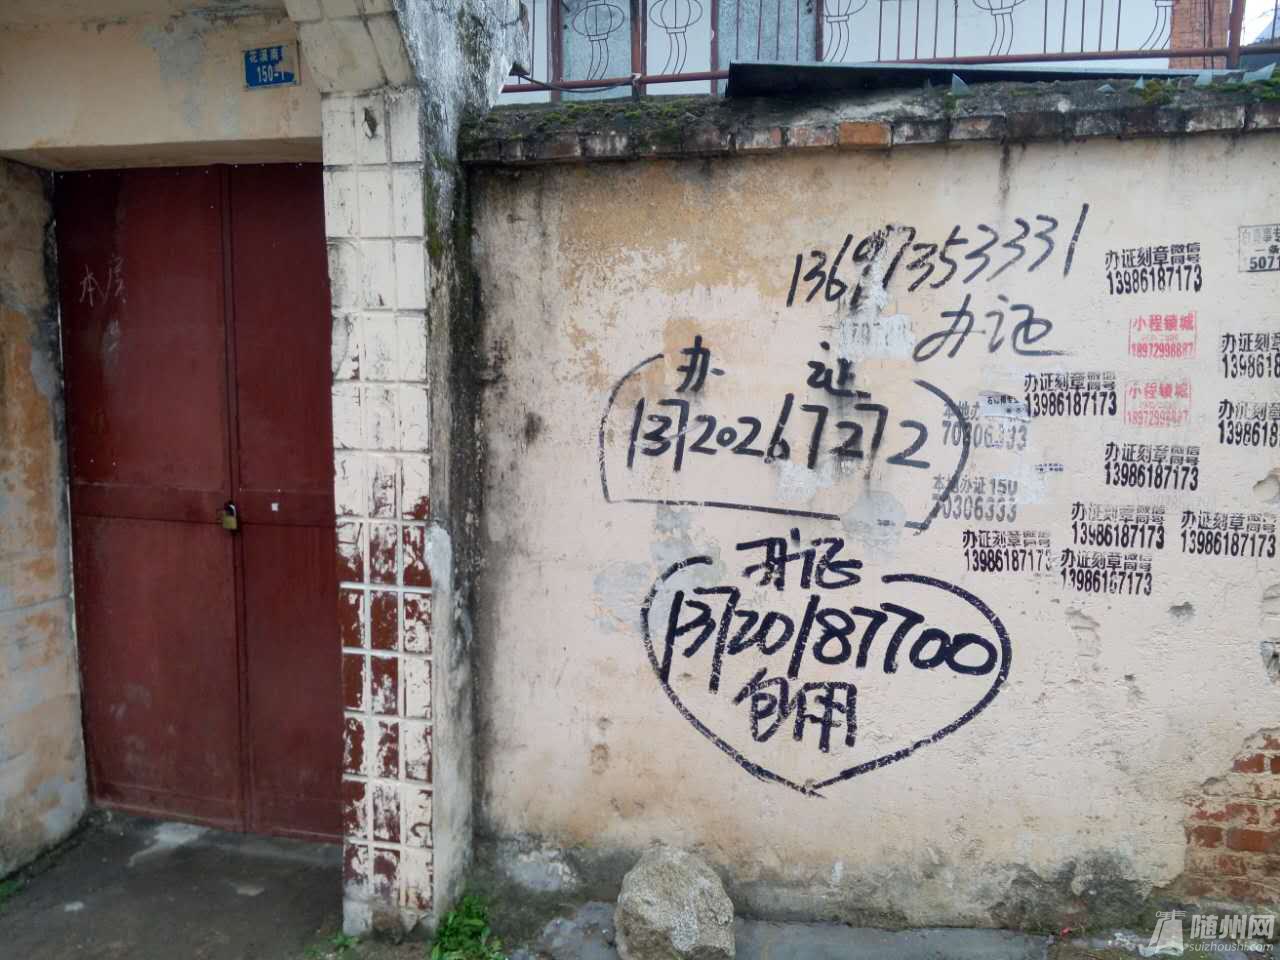 花溪南
150-1
本房
13697353331
办证
办 证
13720267272
办证
13720187700
包用
办证刻章微信号
13986187173
小程锁城
18972998887
办证刻章微信号
13986187173
小程锁城
18972998887
办证刻章
1398618
1398618
本地办
70306333
本地办证150
70306333
办证刻章微信号
13986187173
办证刻章微信号
13986187173
办证刻章微信号
13986187173
办证刻章微信号
13986187173
办证刻章微信号
13986187173
5071
随州网
suizhoushi.com